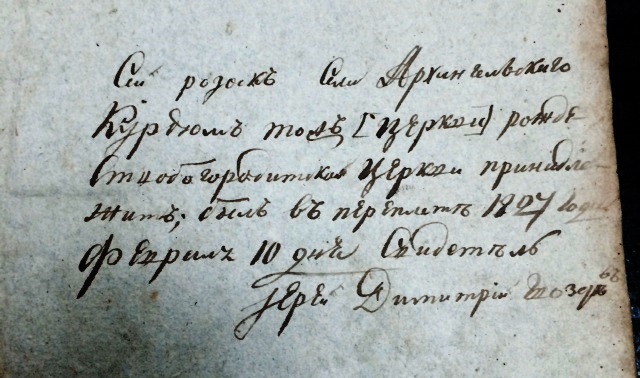 Сей розскъ Села Архангельского
Курдюмъ тожъ [церкви] рожде
ствобогородитской церкви принадле-
житъ; былъ въ переплетѣ 1827 года
Февраля 10 дня Свидетель
Іерей Димитрій